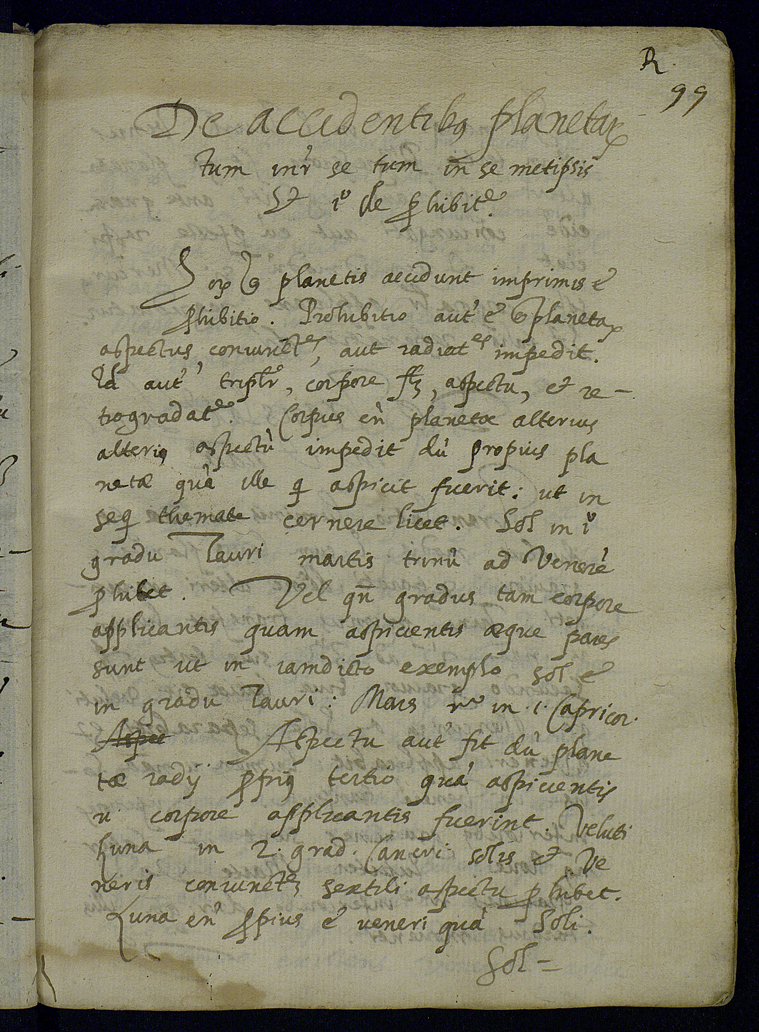 R.
99
De accidentibꝰ planetaꝝ
tum int̃ se tum in se metipsis
Et iº de ꝓhibitᵉ.
planetis accidunt imprimis ē
ꝓhibitio. Prohibitio aut̃ ē planetaꝝ
aspectus coniunctᵉˢ, aut radiatᵉˢ impedit.
Id aut̃ triplr̃, corpore sꝫ, aspectu, et re-
trogradatᵉ. Corpus en̄ planetæ alterius
alteriꝰ aspectū impedit dū propius pla
netæ quã ille q̄ aspicit fuerit: ut in
seq̄ themate cernere licet. Sol in iº
gradu Tauri martis trinū ad Venerē
ꝓhibet. Vel qn̄ gradus tam corpore
applicantis quam aspicientis æque pares
sunt ut in iamdicto exemplo sol ē
in gradu Tauri: Mars v̄º in 1. Capricor.
Aspec Aspectu aut̃ fit dū plane
tæ radij ꝓpriꝰ tertio quã aspicientis
ū corpore applicantis fuerint veluti
Luna in 2. grad. Cancri solis et Ve
neris coniunctᵉꝫ sextili aspectu ꝓhibet.
Luna en̄ ꝓpius ē veneri quã Soli.
Sol=